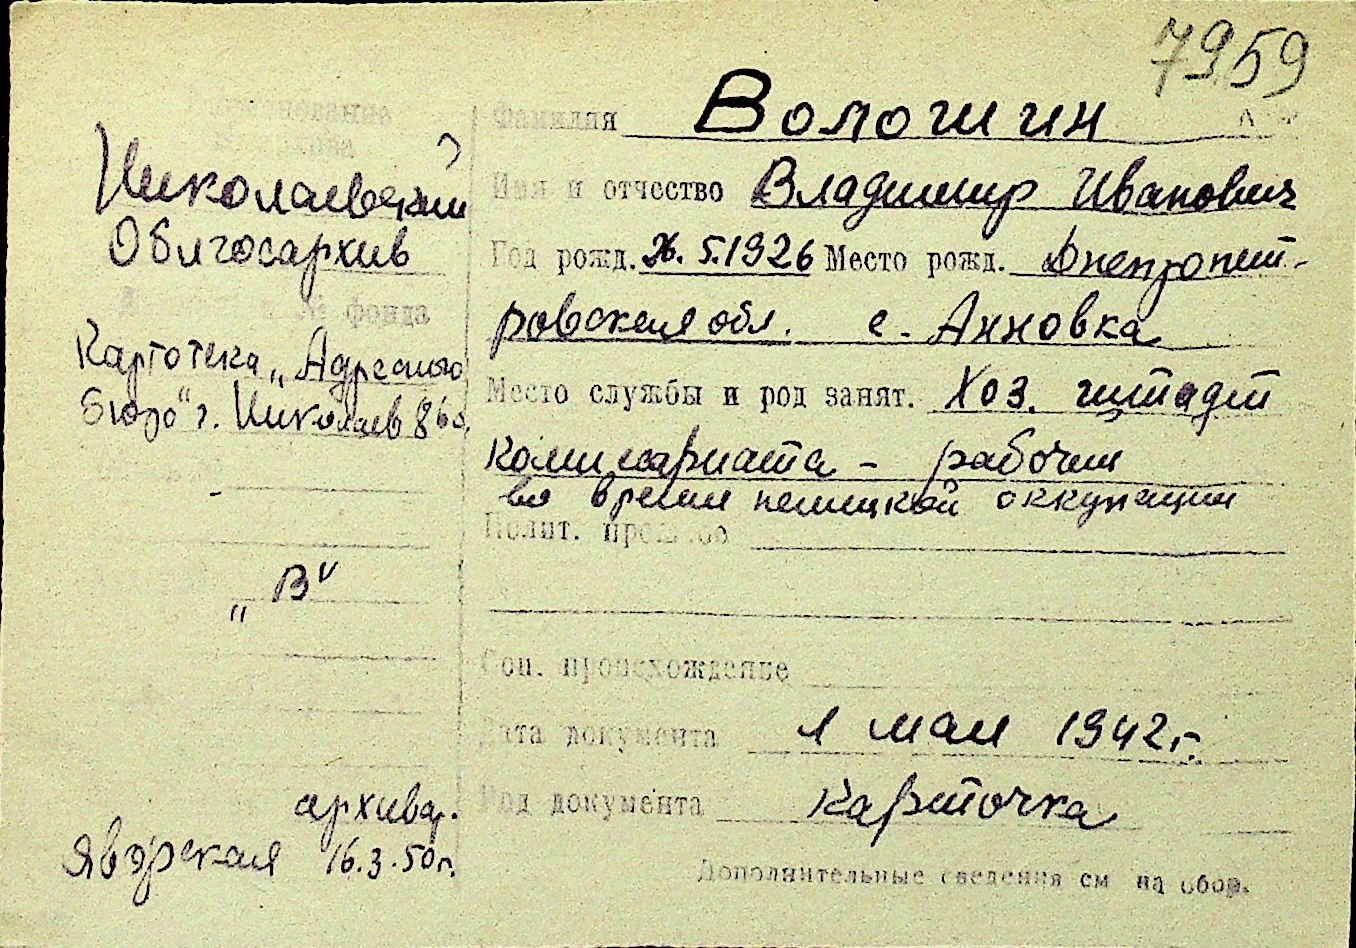 7959
Фамилия Волошин
Имя и отчество Владимир Иванович
Год рожд. 26.5.1926 Место рожд. Днепропет-
ровская обл. с. Анновка
Место службы и род занят. Хоз. штадт
комисариата - рабочий
во время немецкой оккупации
Полит.
Соц. происхождение
Дата документа 1 мая 1942 г.
Род документа карточка
Дополнительные сведения см на обор.
Николаевский
Облгосархив
№ фонда
Картотека „Адресного
бюро" г. Николаев
-
„В"
архивар.
Яворская 16.3.50г.